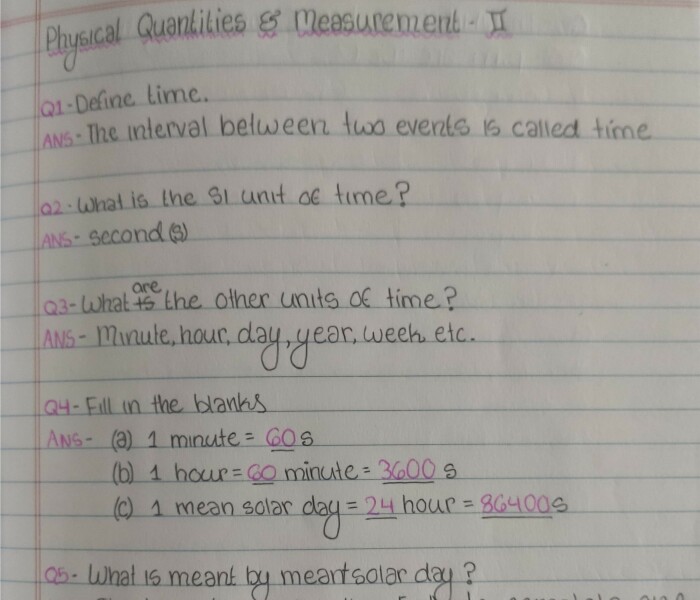 Physical Quantities & Measurement - II
Q1- Define time.
ANS- The interval between two events is called time
Q2- What is the SI unit of time?
ANS- second(s)
Q3- What are the other units of time?
ANS- Minute, hour, day, year, week etc.
Q4- Fill in the blanks
ANS- (a) 1 minute = 60 s
(b) 1 hour = 60 minute = 3600 s
(c) 1 mean solar day = 24 hour = 86400 s
Q5- What is meant by mean solar day?